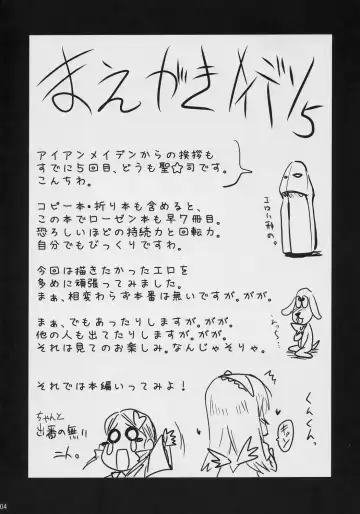 まえがきメイデン5
アイアンメイデンからの挨拶も
すでに5回目、どうも聖☆司です。
こんちわ。
コピー本・折り本も含めると、
この本でローゼン本も早7冊目。
恐ろしいほどの持続力と回転力。
自分でもびっくりですわ。
今回は描きたかったエロを
多めに頑張ってみました。
まぁ、相変わらず本番は無いですが。がが。
まぁ、でもあったりしますが。がが。
他の人も出てたりしますが。がが。
それは見てのお楽しみ。なんじゃそりゃ。
それでは本編いってみよ!
ちゃんと
出番の無い
二人。
くんくん。
04